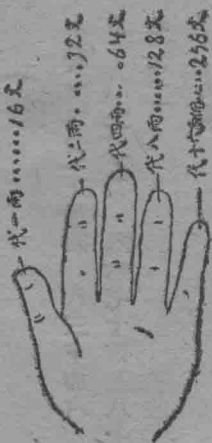 代一两……16支
代二两……32支
代四两……64支
代八两……128支
代十六两……256支